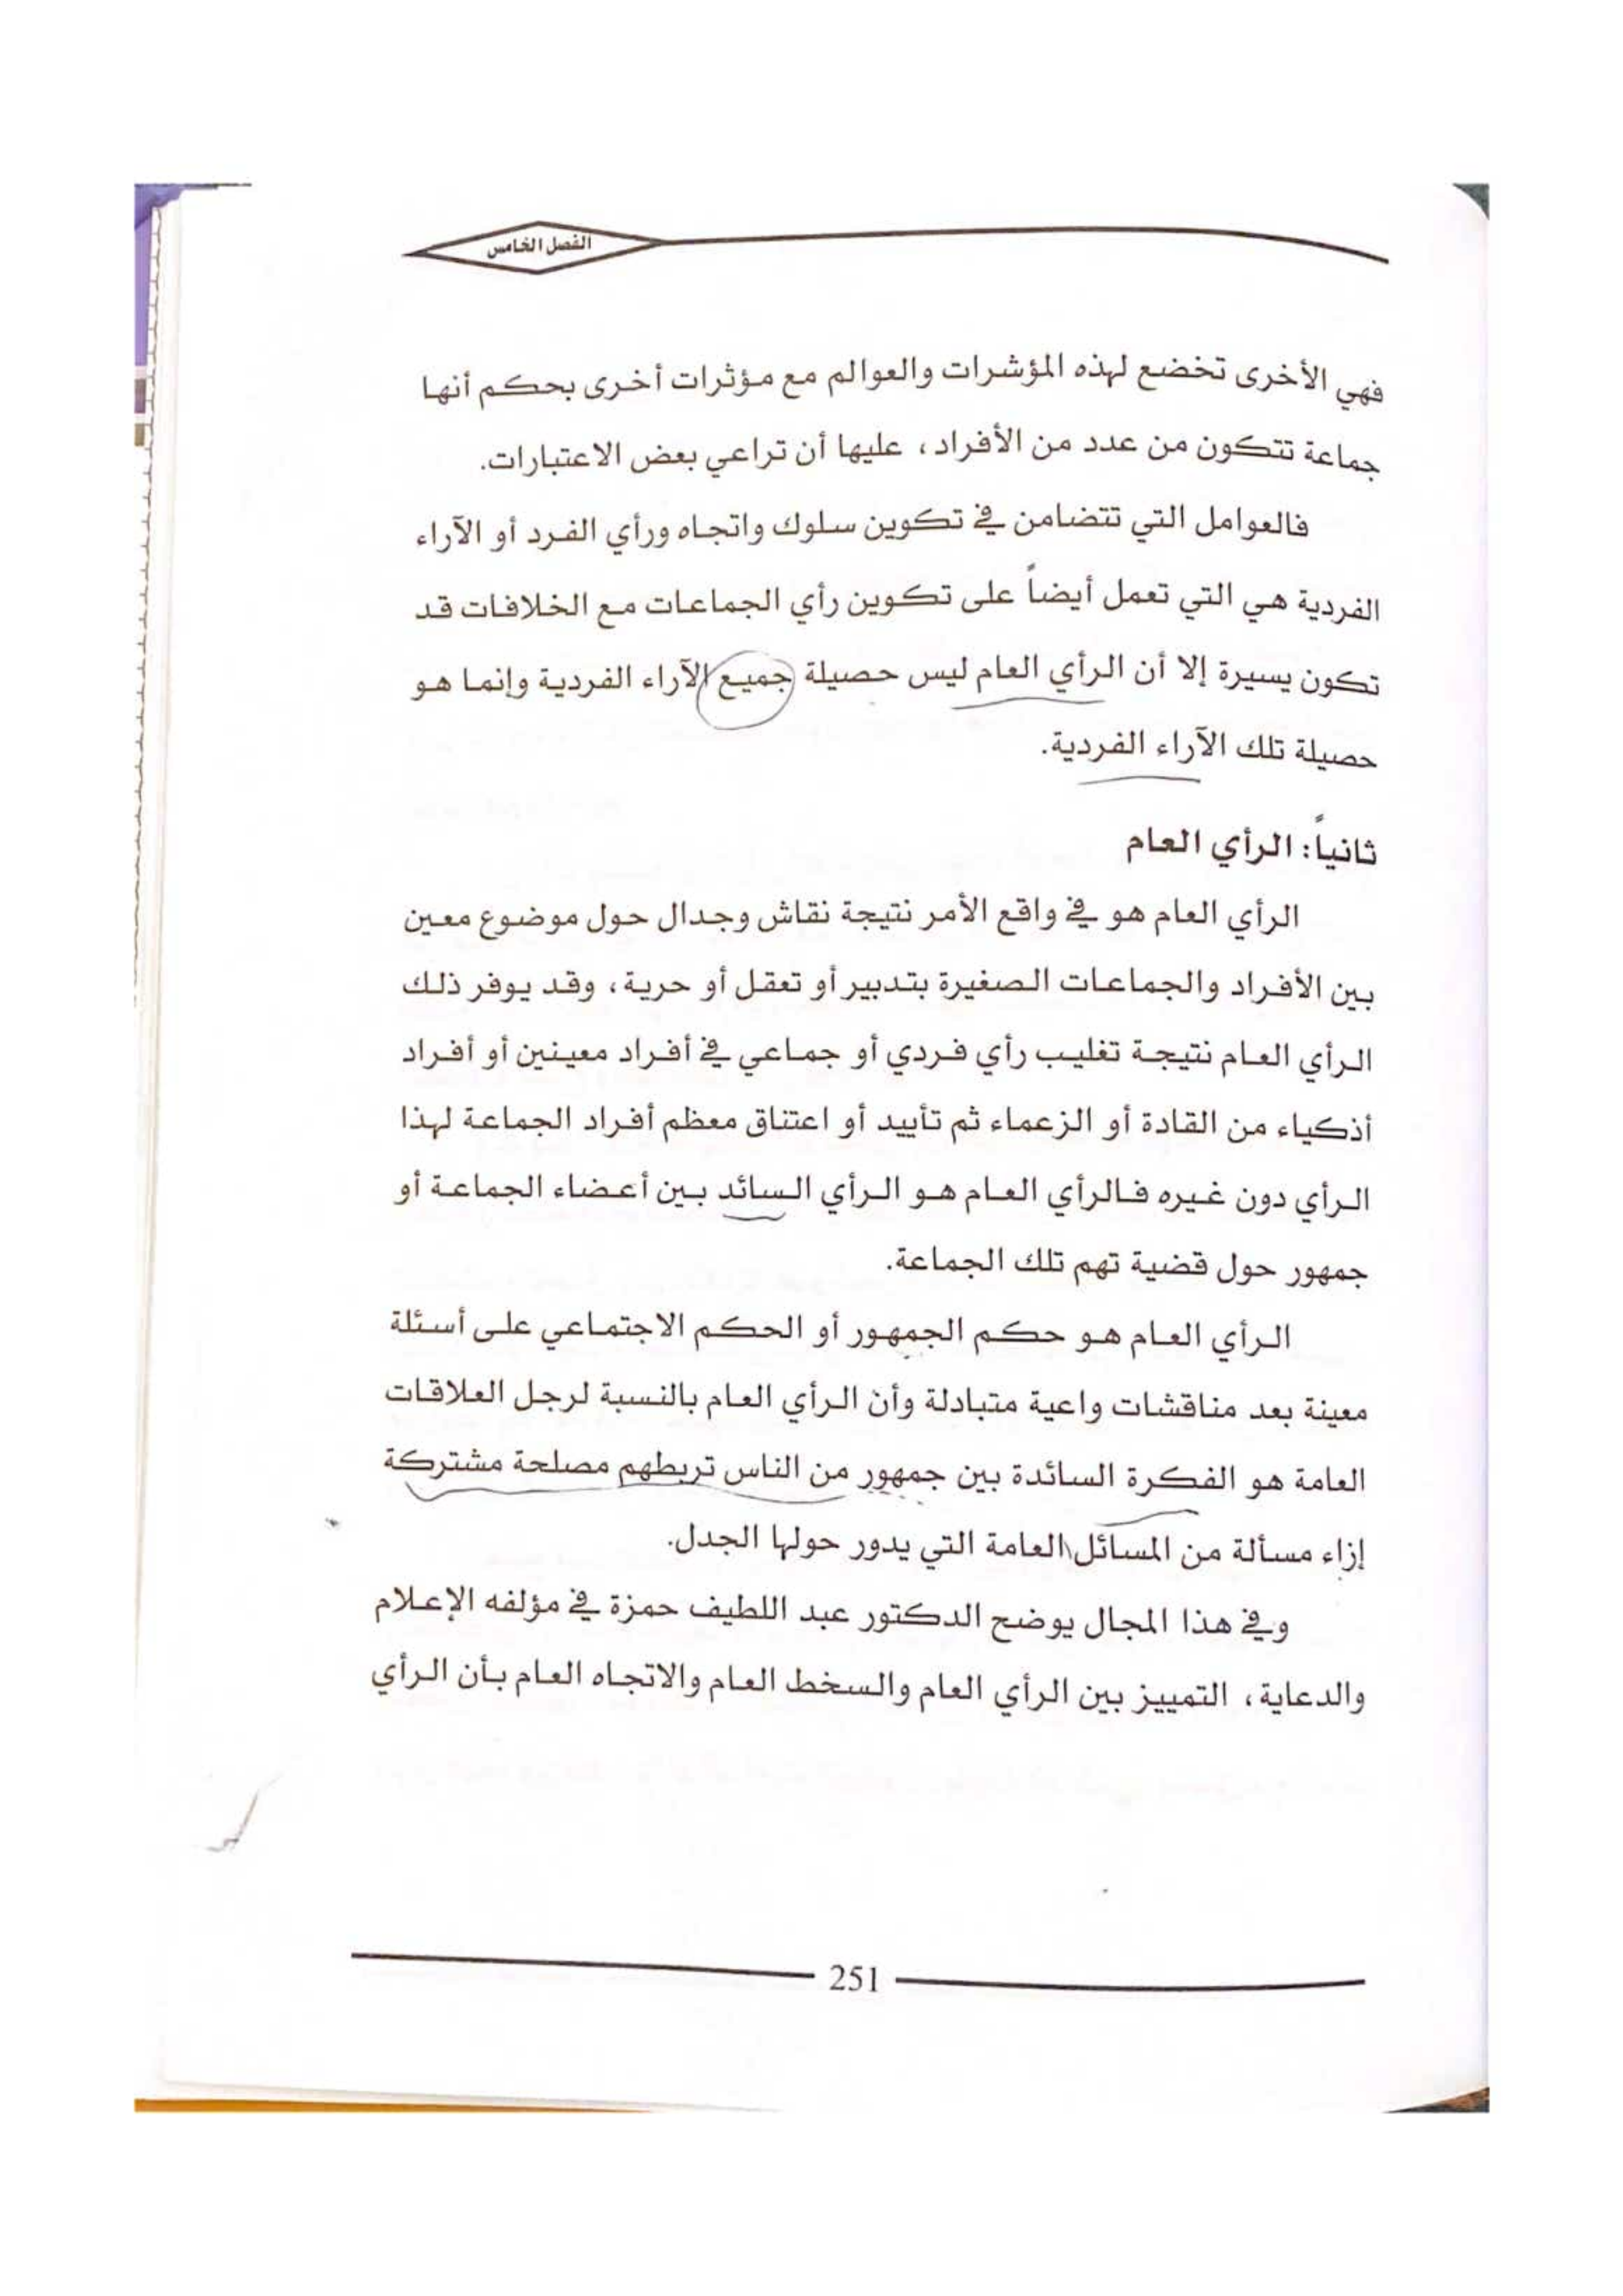 الفصل الخامس
فهي الأخرى تخضع لهذه المؤشرات والعوالم مع مؤثرات أخرى بحكم أنها
جماعة تتكون من عدد من الأفراد، عليها أن تراعي بعض الاعتبارات.
فالعوامل التي تتضامن في تكوين سلوك واتجاه ورأي الفرد أو الآراء
الفردية هي التي تعمل أيضاً على تكوين رأي الجماعات مع الخلافات قد
تكون يسيرة إلا أن الرأي العام ليس حصيلة جميع الآراء الفردية وإنما هو
حصيلة تلك الآراء الفردية.
ثانياً: الرأي العام
الرأي العام هو في واقع الأمر نتيجة نقاش وجدال حول موضوع معين
بين الأفراد والجماعات الصغيرة بتدبير أو تعقل أو حرية، وقد يوفر ذلك
الرأي العام نتيجة تغليب رأي فردي أو جماعي في أفراد معينين أو أفراد
أذكياء من القادة أو الزعماء ثم تأييد أو اعتناق معظم أفراد الجماعة لهذا
الرأي دون غيره فالرأي العام هو الرأي السائد بين أعضاء الجماعة أو
جمهور حول قضية تهم تلك الجماعة.
الرأي العام هو حكم الجمهور أو الحكم الاجتماعي على أسئلة
معينة بعد مناقشات واعية متبادلة وأن الرأي العام بالنسبة لرجل العلاقات
العامة هو الفكرة السائدة بين جمهور من الناس تربطهم مصلحة مشتركة
إزاء مسألة من المسائل العامة التي يدور حولها الجدل.
وفي هذا المجال يوضح الدكتور عبد اللطيف حمزة في مؤلفه الإعلام
والدعاية، التمييز بين الرأي العام والسخط العام والاتجاه العام بأن الرأي
251